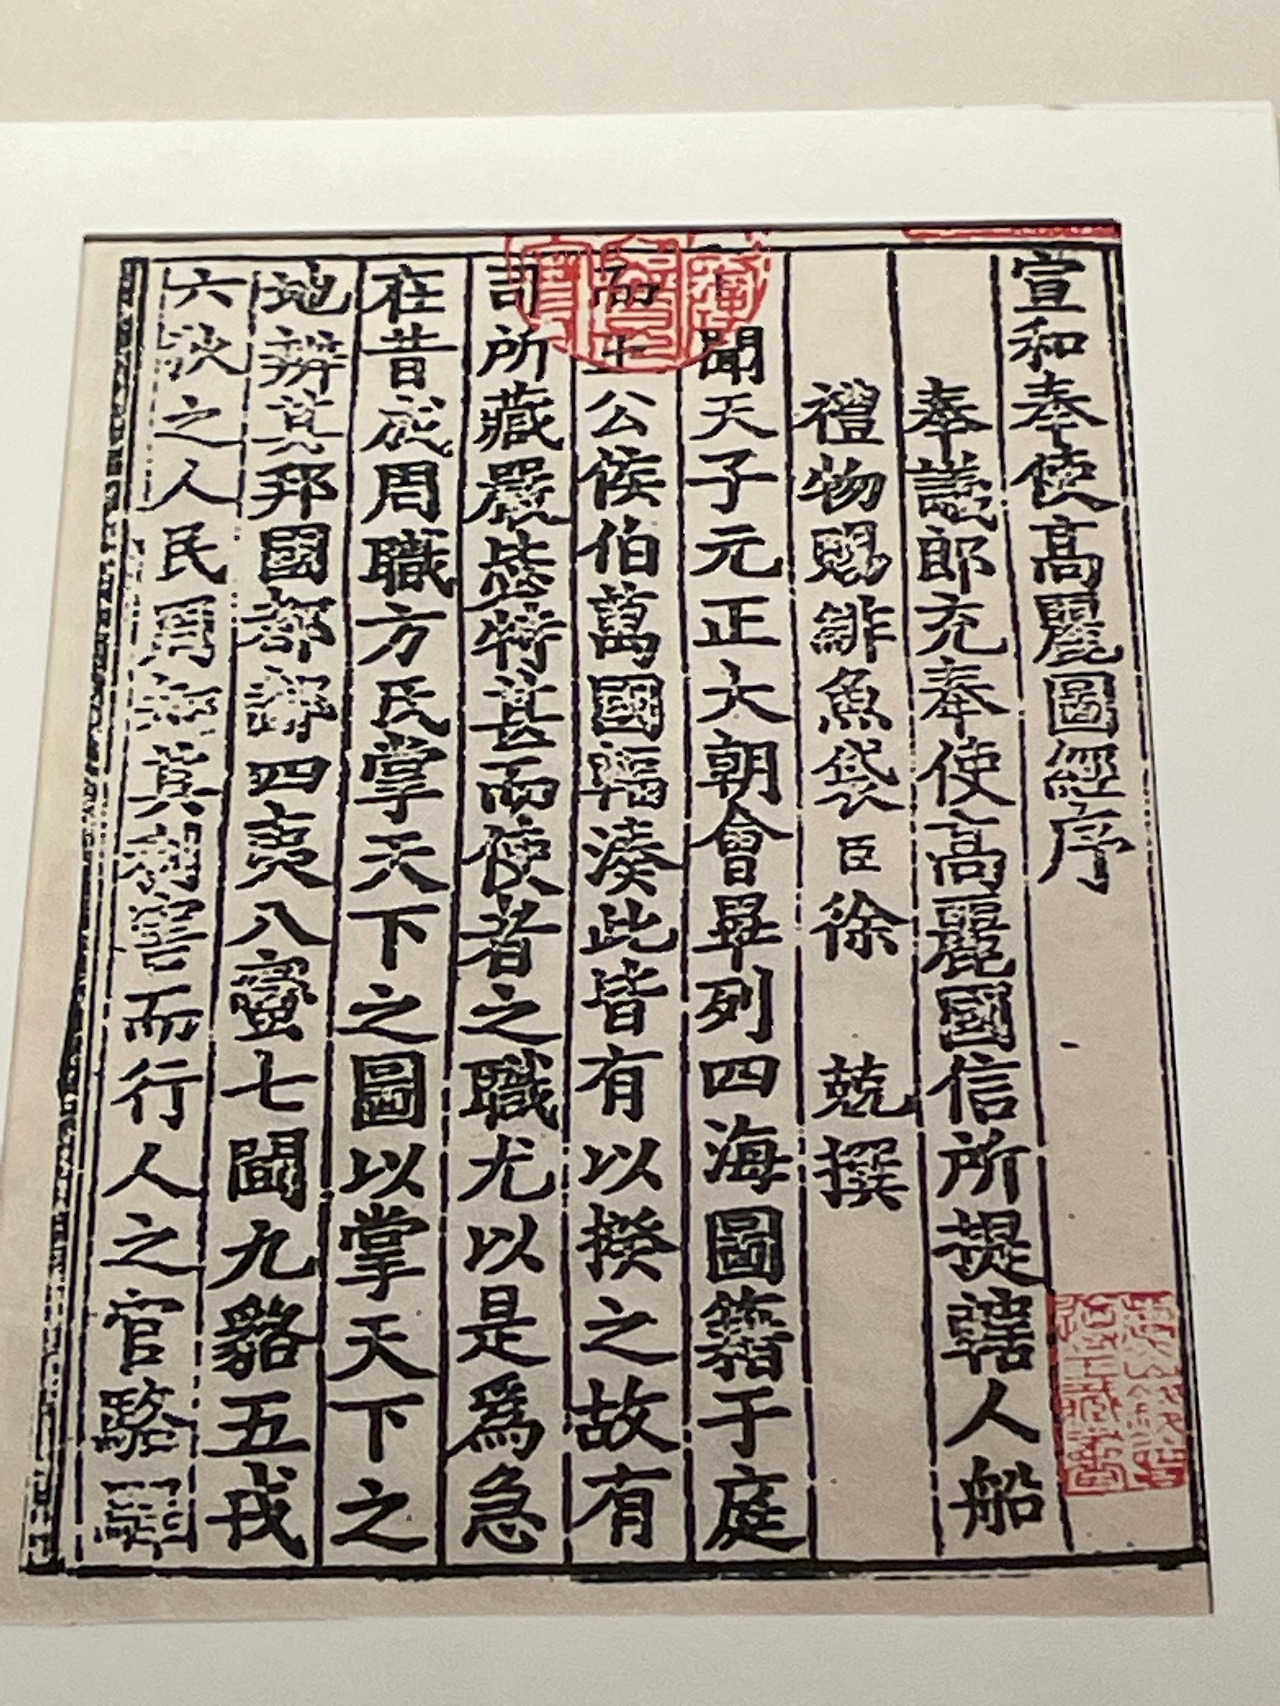 宣和奉使高麗圖經序
奉議郎充奉使高麗國信所提轄人船
禮物賜緋魚袋臣徐兢撰
聞天子元正大朝會畢列四海圖籍于庭
而王公侯伯萬國輻湊此皆有以揆之故有
司所藏嚴毖特甚而使者之職尤以是爲急
在昔成周職方氏掌天下之圖以掌天下之
地辨其邦國都鄙四夷八蠻七閩九貉五戎
六狄之人民周知其利害而行人之官駱